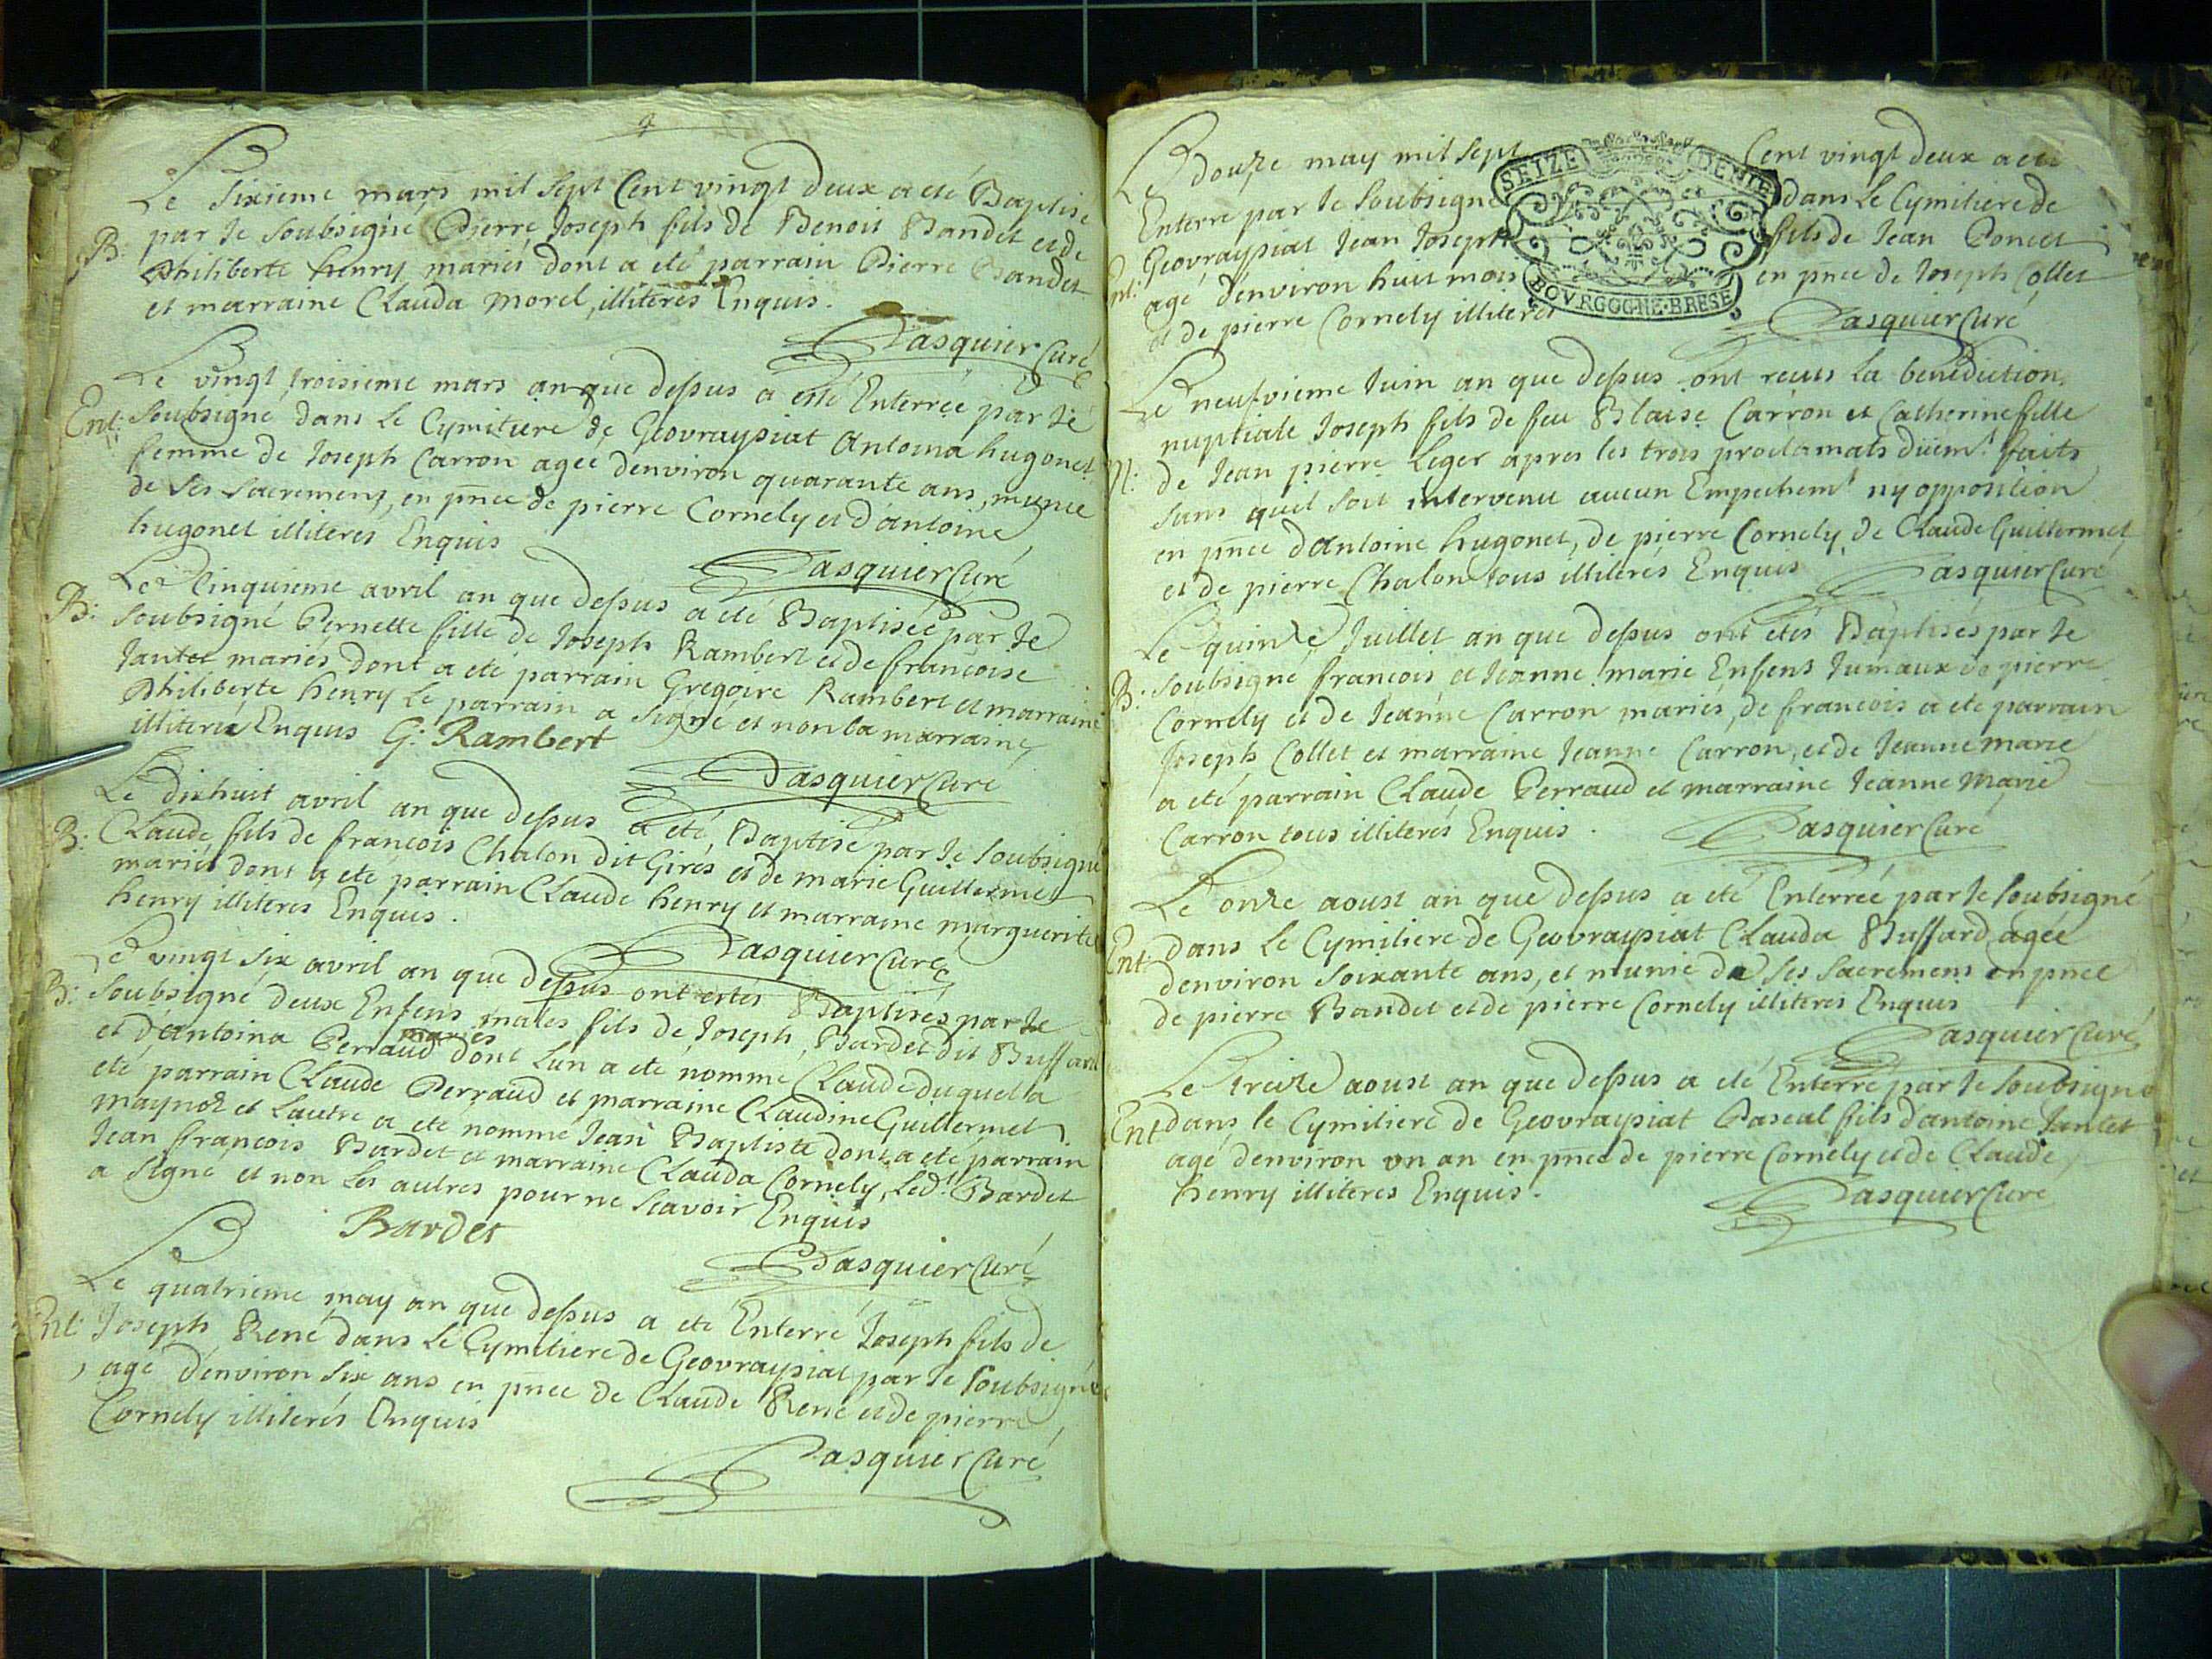 Le Sixieme mars mil Sept Cent vingt deux a eté Baptisé
B: par Je Soubsigné Pierre Joseph fils de Benoit Bandet et de
Philiberte henry mariés dont a eté parrain Pierre Bandet
et marraine Clauda morel, illiterés Enquis.
Pasquier Curé
Le vingt troisieme mars an que dessus a esté Enterrée par Je
Ent: Soubsigné dans Le Cymitiere de Geovraysiat Antoina hugonet
femme de Joseph Carron agée denviron quarante ans, munie
de Ses Sacremens, en pnce de pierre Cornely et d'antoine
hugonet illiterés Enquis
Pasquier Curé
Le Cinquieme avril an que dessus a eté Baptisée par Je
B: Soubsigné Pernette fille de Joseph Rambert et de françoise
Jantet mariés dont a eté parrain Gregoire Rambert et marraine
Philiberte henry Le parrain a Signé et non la marraine
illiterée Enquis G: Rambert
Pasquier Curé
Le dixhuit avril an que dessus a eté Baptisé par Je Soubsigné
B: Claude fils de françois Chalon dit Girés et de marie Guillermet
mariés dont a eté parrain Claude henry et marraine marguerite
henry illiterés Enquis.
Pasquier Curé
Le vingt Six avril an que dessus ont estés Baptisés par Je
B: Soubsigné deux Enfens males fils de Joseph Bardet dit Buffard
mariés
et d'antoina Perraud dont Lun a eté nommé Claude duquel a
eté parrain Claude Perraud et marraine Claudine Guillermet
maynoz et Lautre a eté nommé Jean Baptiste dont a eté parrain
Jean françois Bardet et marraine Clauda Cornely, Ledt Bardet
a Signé et non Les autres pour ne Scavoir Enquis
Bardet
Pasquier Curé
Le quatrieme may an que dessus a eté Enterré Joseph fils de
Ent: Joseph René dans Le Cymitiere de Geovraysiat par Je Soubsigné
agé d'environ Six ans en pnce de Claude René et de pierre
Cornely illiterés Enquis
Pasquier Curé
Le douze may mil Sept Cent vingt deux a eté
SEIZE DENIE
Enterré par Je Soubsigné dans Le Cymitiere de
Geovraysiat Jean Joseph fils de Jean Poncet
Ent: agé d'environ huit mois en pnce de Joseph Collet
BOVRGOGNE·BRESE
et de pierre Cornely illiterés
Pasquier Curé
Le neufvieme Juin an que dessus ont recus La benediction
nuptiale Joseph fils de feu Blaise Carron et Catherine fille
N: de Jean pierre Leger apres les trois proclamats düemt faits
Sans quel Soit intervenu aucun Empechemt ny opposition
en pnce d'antoine hugonet, de pierre Cornely, de Claude Guillermet
et de pierre Chalon tous illiterés Enquis Pasquier Curé
Le quinze Juillet an que dessus ont etés Baptisés par Je
B: Soubsigné francois et Jeanne marie Enfens Jumaux de pierre
Cornely et de Jeanne Carron mariés, de francois a eté parrain
Joseph Collet et marraine Jeanne Carron, et de Jeanne marie
a eté parrain Claude Perraud et marraine Jeanne Marie
Carron tous illiterés Enquis. Pasquier Curé
Le onze aoust an que dessus a eté Enterrée par Je Soubsigné
Ent: dans Le Cymitiere de Geovraysiat Clauda Buffard agée
denviron Soixante ans, et munie de Ses Sacremens en pnce
de pierre Bandet et de pierre Cornely illiterés Enquis
Pasquier Curé
Le treize aoust an que dessus a eté Enterré par Je Soubsigné
Ent dans le Cymitiere de Geovraysiat Pascal fils d'antoine Jantet
agé denviron un an en pnce de pierre Cornely et de Claude
henry illiterés Enquis.
Pasquier Curé